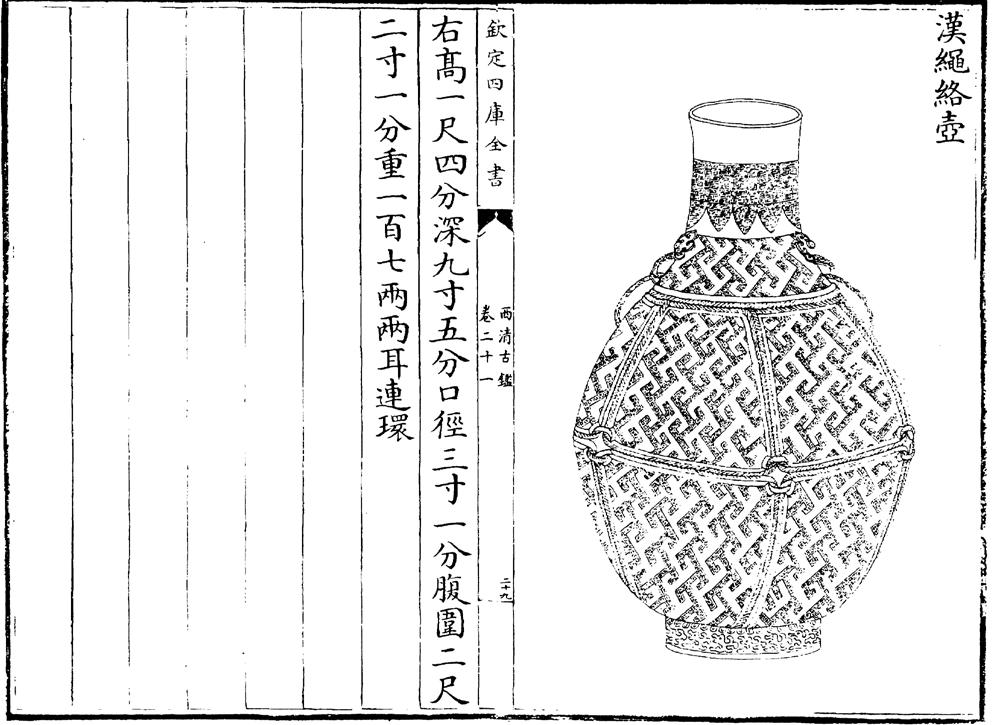 漢繩絡壺
欽定四庫全書
西清古鑑
卷二十一
二十九
右高一尺四分深九寸五分口徑三寸一分腹圍二尺
二寸一分重一百七兩兩耳連環